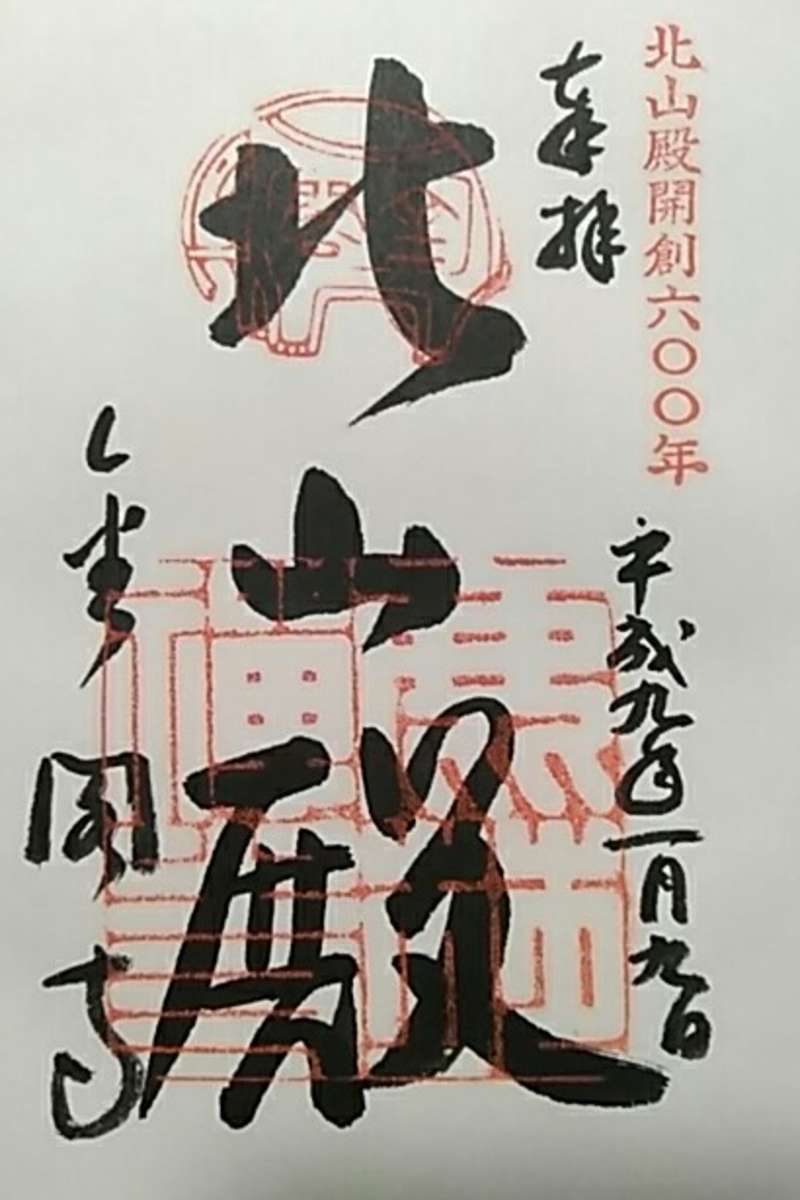 北山殿開創六〇〇年
奉拝
平成九年一月九日
北山殿
金閣寺